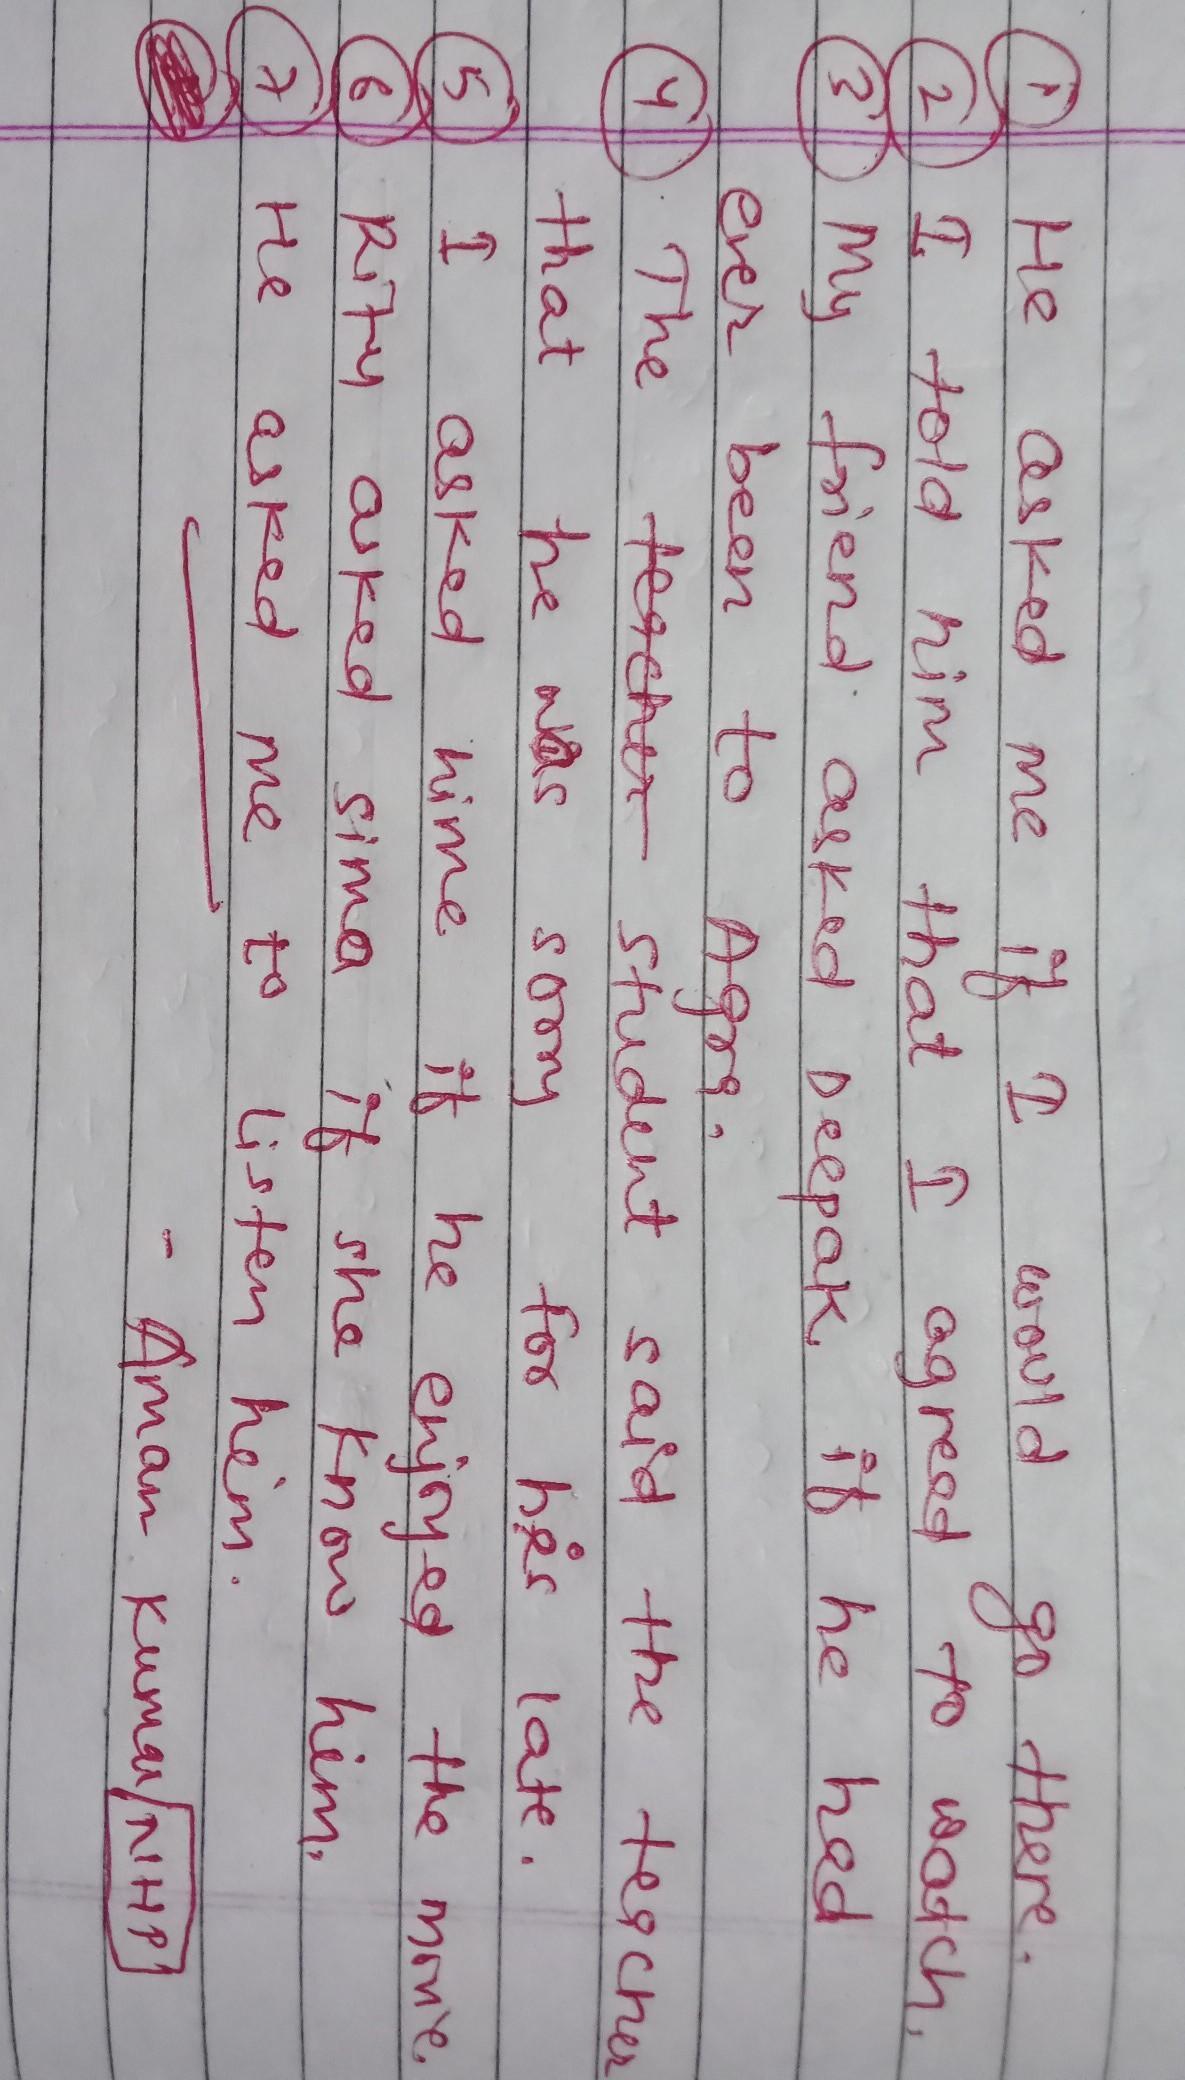 ① He asked me if I would go there.
② I told him that I agreed to watch.
③ My friend asked Deepak if he had
ever been to Agra.
④ The techer student said the teacher
that he was sorry for his late.
⑤ I asked hime if he enjoyed the movie.
⑥ Rity asked sima if she know him.
⑦ He asked me to listen him.
- Aman Kumar/NHP